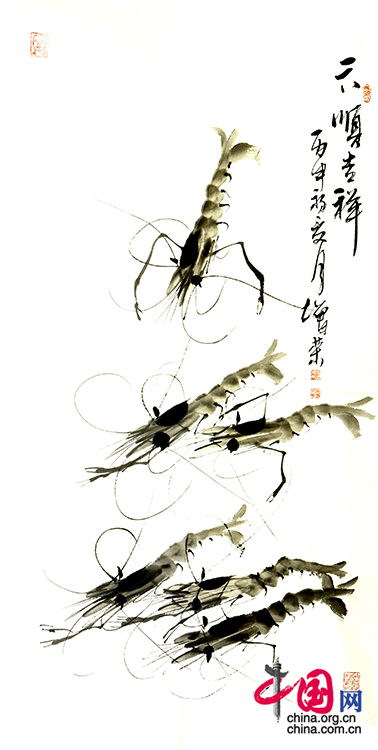 六順吉祥
丙申初夏月
增荣
中国网
china.org.cn
china.com.cn